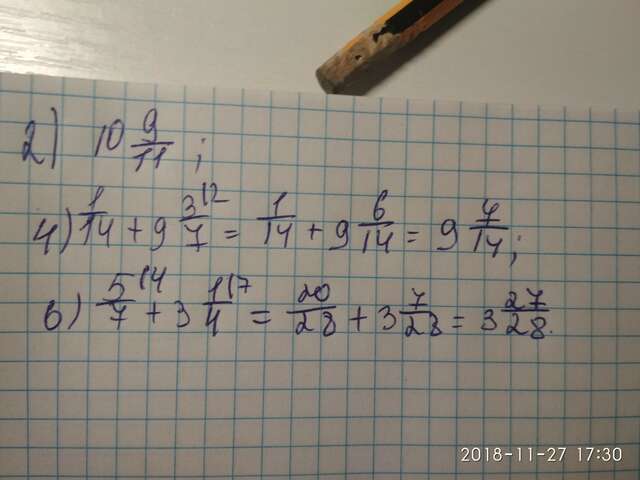 2) 10 9/11 ;
4) 1/14 + 9 3/7 |2 = 1/14 + 9 6/14 = 9 7/14 ;
6) 5/7 |4 + 3 1/4 |7 = 20/28 + 3 7/28 = 3 27/28.
2018-11-27 17:30